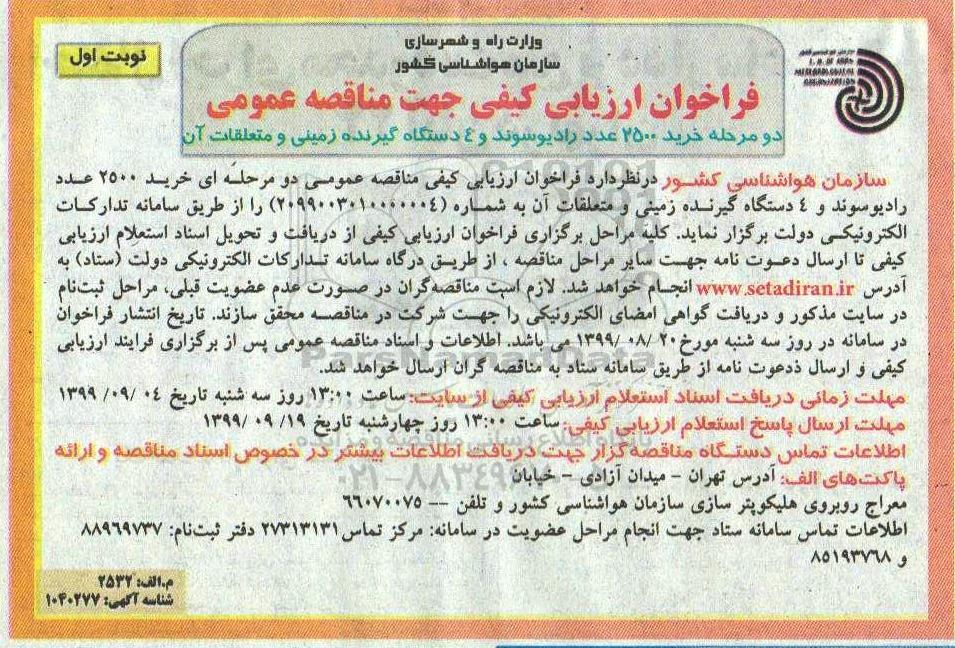 نوبت اول
وزارت راه و شهرسازی
سازمان هواشناسی کشور
I. R. OF IRAN
METEOROLOGICAL
ORGANIZATION
فراخوان ارزیابی کیفی جهت مناقصه عمومی
دو مرحله خرید ۲۵۰۰ عدد رادیوسوند و ٤ دستگاه گیرنده زمینی و متعلقات آن
سازمان هواشناسی کشور درنظردارد فراخوان ارزیابی کیفی مناقصه عمومی دو مرحله ای خرید ۲۵۰۰ عدد
رادیوسوند و ٤ دستگاه گیرنده زمینی و متعلقات آن به شماره (۲۰۹۹۰۰۳۰۱۰۰۰۰۰۰٤) را از طریق سامانه تدارکات
الکترونیکی دولت برگزار نماید. کلیه مراحل برگزاری فراخوان ارزیابی کیفی از دریافت و تحویل اسناد استعلام ارزیابی
کیفی تا ارسال دعوت نامه جهت سایر مراحل مناقصه ، از طریق درگاه سامانه تدارکات الکترونیکی دولت (ستاد) به
آدرس www.setadiran.ir انجام خواهد شد. لازم است مناقصه‌گران در صورت عدم عضویت قبلی، مراحل ثبت‌نام
در سایت مذکور و دریافت گواهی امضای الکترونیکی را جهت شرکت در مناقصه محقق سازند. تاریخ انتشار فراخوان
در سامانه در روز سه شنبه مورخ ۲۰/ ۰۸/ ۱۳۹۹ می باشد. اطلاعات و اسناد مناقصه عمومی پس از برگزاری فرایند ارزیابی
کیفی و ارسال ذدعوت نامه از طریق سامانه ستاد به مناقصه گران ارسال خواهد شد.
مهلت زمانی دریافت اسناد استعلام ارزیابی کیفی از سایت: ساعت ۱۳:۰۰ روز سه شنبه تاریخ ۰٤ /۰۹/ ۱۳۹۹
مهلت ارسال پاسخ استعلام ارزیابی کیفی: ساعت ۱۳:۰۰ روز چهارشنبه تاریخ ۱۹/ ۰۹ /۱۳۹۹
اطلاعات تماس دستگاه مناقصه گزار جهت دریافت اطلاعات بیشتر در خصوص اسناد مناقصه و ارائه
پاکت‌های الف: آدرس تهران - میدان آزادی - خیابان
معراج روبروی هلیکوپتر سازی سازمان هواشناسی کشور و تلفن -- ۶۶۰۷۰۰۷۵
اطلاعات تماس سامانه ستاد جهت انجام مراحل عضویت در سامانه: مرکز تماس ۲۷۳۱۳۱۳۱ دفتر ثبت‌نام: ۸۸۹۶۹۷۳۷
و ۸۵۱۹۳۷۶۸
م.الف: ۲۵۳۲
شناسه آگهی: ۱۰۴۰۲۷۷
ParsNamadData